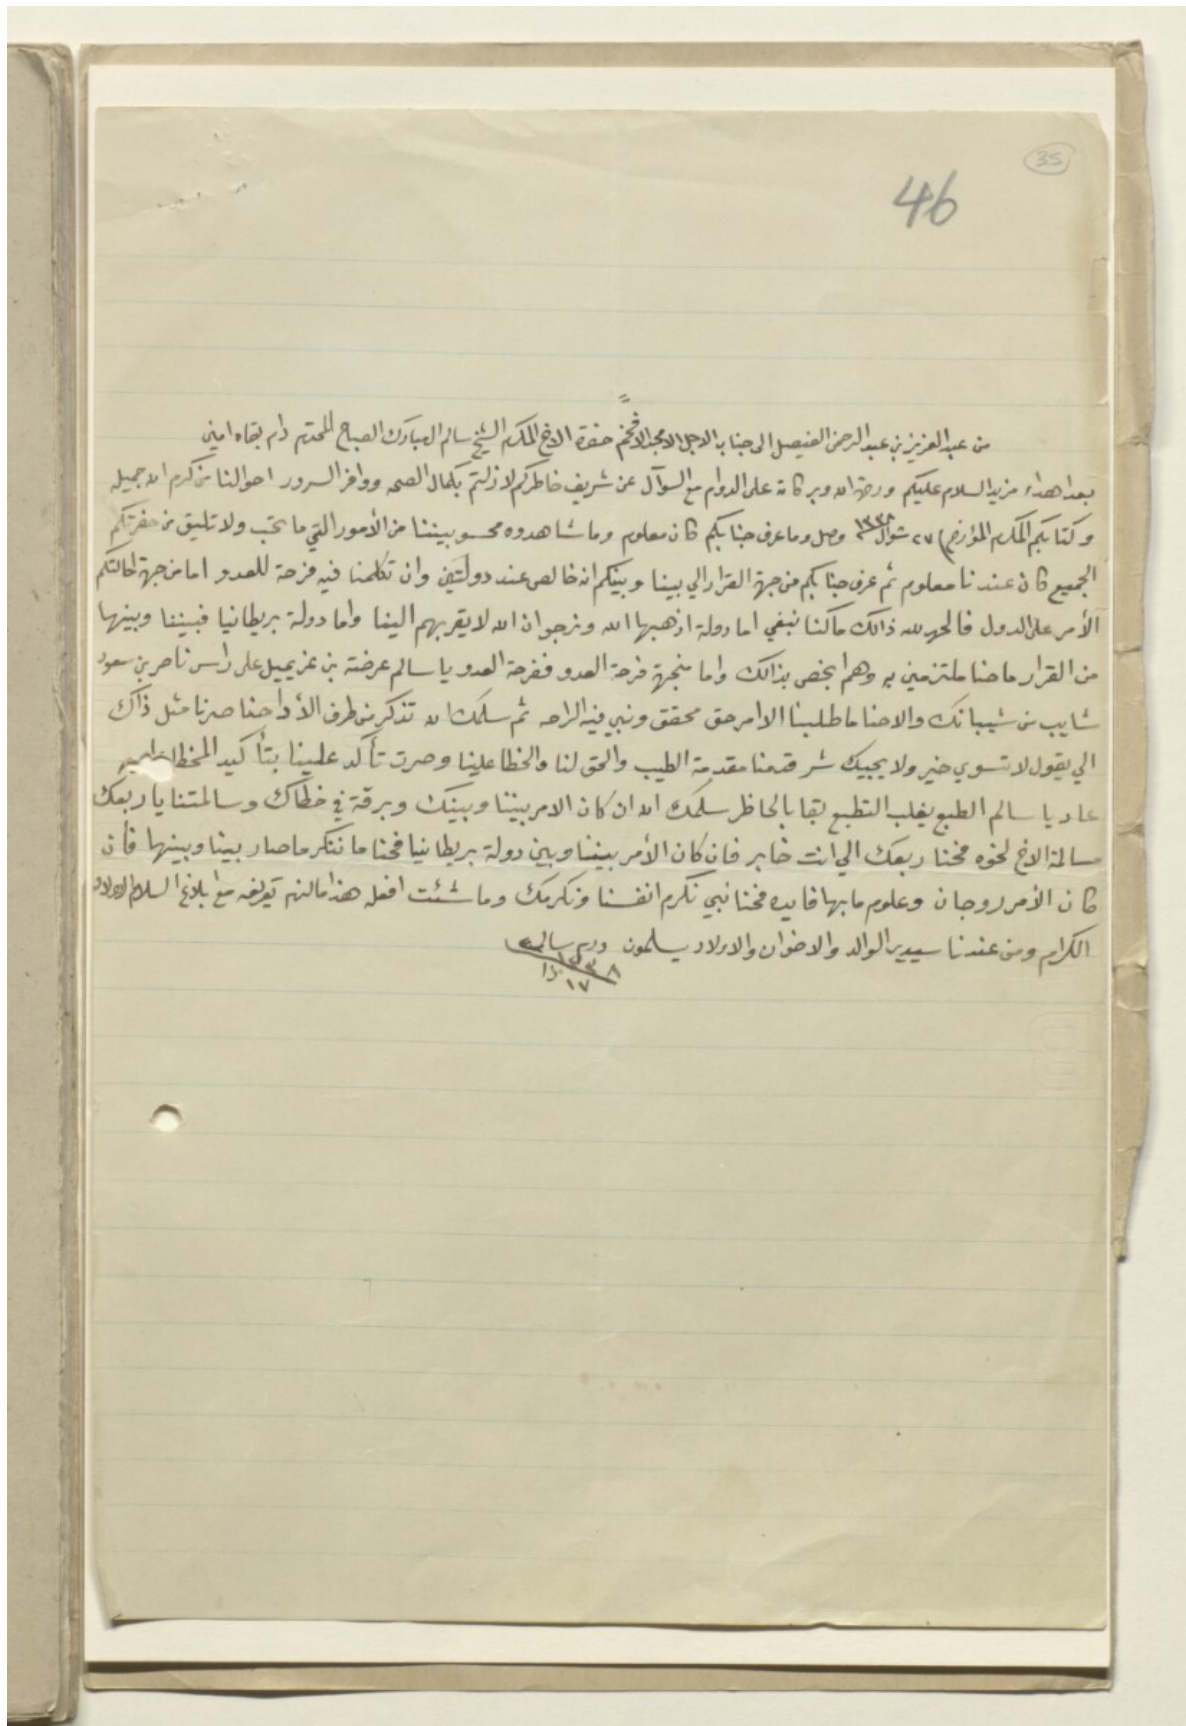 35
46
من عبد العزيز بن عبد الرحمن الفيصل الى جناب الاجل الامجد الافخم حضرة الاخ المكرم الشيخ سالم المبارك الصباح المحترم دام بقاه امين
بعد اهداء مزيد السلام عليكم ورحمة الله وبركاته على الدوام مع السوآل عن شريف خاطركم لازلتم بكمال الصحه ووافر السرور احوالنا من كرم الله جميله
وكتابكم المكرم المؤرخ ٢٧ شوال ١٣٣٨ وصل وما عرف جنابكم كان معلوم وما شاهدوه محسو بيننا من الأمور التي ما تحب ولا تليق من حضرتكم
الجميع كان عندنا معلوم ثم عرف جنابكم من جهة القرار الي بينا وبينكم انه خالص عند دولتين وان تكلمنا فيه فرحة للعدو اما من جهة احالتكم
الأمر على الدول فالحمد لله ذالك ما كنا نبغي اما دولة اذهبها الله ونرجوا ان الله لا يقربهم الينا واما دولة بريطانيا فبيننا وبينها
من القرار ما حنا ملتزمين به وهم ابخص بذالك واما منجهة فرحة العدو ففرحة العدو يا سالم عرضة بن عزيميل على راس ناصر بن سعود
شايب من شيبانك والا حنا ما طلبنا الا امر حق محقق ونبي فيه الراحه ثم سلمك الله تذكر من طرف الأ احنا صرنا مثل ذاك
الي يقول لا تسوي خير ولا يجيك شر قدمنا مقدمة الطيب والحق لنا والخطا علينا وصرت تأكد علينا بتأكيد المخطا
عاد يا سالم الطبع يغلب التطبع بقا بالحاظر سلمك الله ان كان الامر بيننا وبينك وبرقة في خطاك وسالمتنا يا ربعك
مسالمة الاخ لخوه فحنا ربعك الي انت خابر فان كان الأمر بيننا وبين دولة بريطانيا فحنا ما ننكر ما صار بينا وبينها فأن
كان الأمر روجان وعلوم ما بها فايده فحنا نبي نكرم انفسنا ونكرمك وما شئت افعله هذا مالزم تعريفه مع ابلاغ السلام الاولاد
الكرام ومن عندنا سيدي الوالد والاخوان والاولاد يسلمون ودم سالم
١٣٣٨
١٧